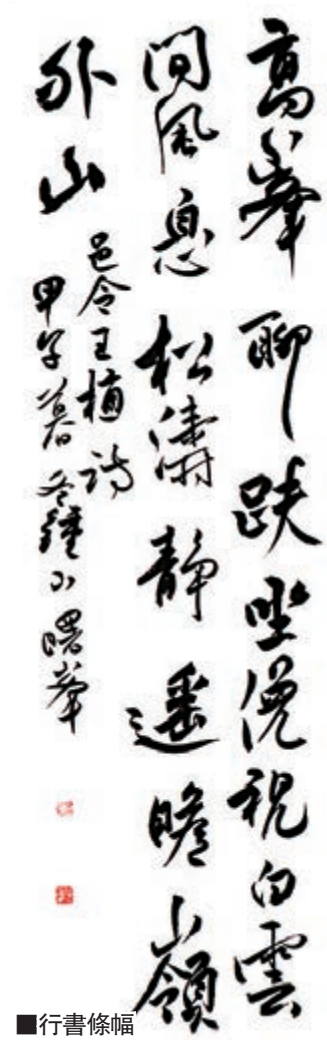 高峯聊趺坐俛視白雲
間風息松濤靜遥瞻嶺
外山
邑令王植詩
甲子暮冬鍾山曙峯
■行書條幅